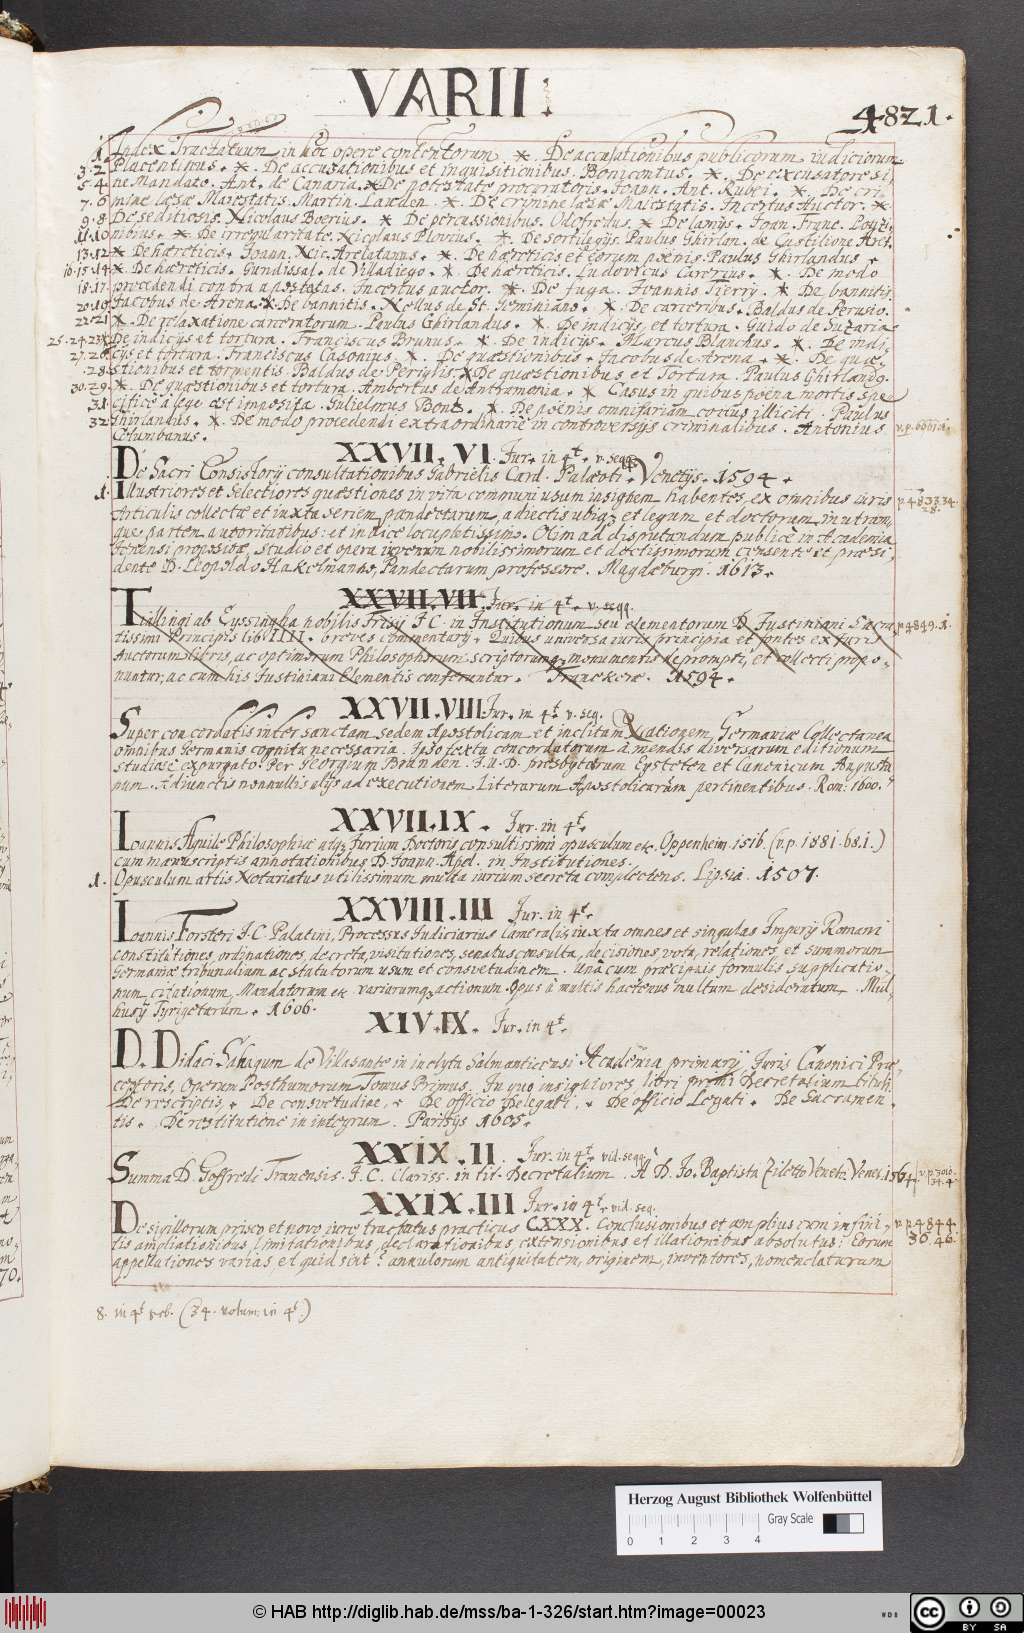 VARII.
4821.
1. Index Tractatuum in hoc opere contentorum * De accusationibus publicorum iudiciorum
3.2 Placentinus. * De accusationibus et inquisitionibus. Bonicontus. * De excusatore si-
5.4 ne Mandato. Ant. de Canaria. * De potestate procuratoris. Joann. Ant. Rubei. * De cri-
7.6 minae laesae Maiestatis. Martin. Lauden. * De crimine laesae Maiestatis. Incertus Auctor. *
9.8 De seditiosis. Nicolaus Boerius. * De percussionibus. Odofredus. * De lamijs. Joan. Franc. Ponzi-
11.10 nibius. * De irregularitate. Nicolaus Plovius. * De sortilegijs. Paulus Ghirlan. de Castilione Aret.
13.12 * De haereticis. Joann. Nic. Arelatanus. * De haereticis et eorum poenis. Paulus Ghirlandus.
16.15.14 * De haereticis. Gundissal. de Villadiego. * De haereticis. Ludovicus Carerius. * De modo
18.17. procedendi contra apostatas. Incertus auctor. * De fuga. Joannis Tierry. * De bannitis.
20.19 Jacobus de Arena. * De bannitis. Nellus de St. Geminiano. * De carceribus. Baldus de Perusio.
22.21 * De relaxatione carceratorum. Paulus Ghirlandus. * De indicijs et tortura. Guido de Suzaria
25.24.23 * De indicijs et tortura. Franciscus Brunus. * De indicijs. Marcus Blanchus. * De indi-
27.26. cijs et tortura. Franciscus Casonius. * De quaestionibus. Jacobus de Arena. * De quae-
28. stionibus et tormentis Baldus de Periglis. * De quaestionibus et Tortura. Paulus Ghirland9.
30.29. * De quaestionibus et tortura. Ambertus de Antramonia. * Casus in quibus poena mortis spe
31. cifice a lege est imposita. Gulielmus Bont. * De poenis omnifariam coitus illiciti. Paulus
32 Ghirlandus. * De modo procedendi extraordinarie in controversijs criminalibus. Antonius
Columbanus.
XXVII. VI. Jur. in 4t. v. seqq.
De Sacri Consistorij consultationibus Gabrielis Card. Palaeoti. Venetijs. 1594.
1. Illustriores et Selectiores quaestiones in vita communi usum insignem habentes, ex omnibus iuris
p. 4833.34.
28.
Articulis collectae et iuxta seriem pandectarum, adiectis ubiq3 et legum et doctorum in utram,
que partem autoritatibus: et indice locupletissimo. Olim ad disputandum publice in Academia
Forensi propositae, studio et opera iuvenum nobilissimorum et doctissimorum consente et praesi-
dente D. Leopoldo Hakelmanno, Pandectarum professore. Magdaeburgi. 1613.
XXVII. VII. Jur. in 4t. v. seqq.
Tiallingi ab Eyssingha nobilis Frisij J.C. in Institutionum seu elementorum D. Justiniani Sacra-
p. 4849.1.
tissimi Principis lib. IIII. breves commentarij. Quibus universa iuris principia et fontes ex Juris
Auctorum libris, ac optimorum Philosophorum scriptorumq3 monumentis deprompti, et collecti propo-
nuntur, ac cum his Justiniani Elementis conferuntur. Franekerae. 1594.
XXVII. VIII. Jur. in 4t. v. seq.
Super concordatis inter sanctam Sedem Apostolicam et inclitam Nationem Germaniae Collectanea
omnibus Germanis cognitu necessaria. Ipso textu concordatorum a mendis diversarum editionum
studiose expurgato. Per Georgium Branden. J.U.D. presbyterum Eysteten et Canonicum Augusta
num. Adiunctis nonnullis alijs ad executionem Literarum Apostolicarum pertinentibus. Rom: 1600.
XXVII. IX. Jur. in 4t.
Joannis Aquile Philosophiae atq3 Jurium Doctoris consultissimi opusculum etc. Oppenheim. 1516. (v.p. 1581.68.1.)
cum manuscriptis annotationibus D. Joann. Apel. in Institutiones.
1. Opusculum artis Notariatus utilissimum multa iurium secreta complectens. Lipsiae. 1507.
XXVIII. III Jur. in 4t.
Joannis Forsteri J.C. Palatini, Processus Judiciarius Cameralis, iuxta omnes et singulas Imperij Romani
constitutiones, ordinationes, decreta, visitationes, senatusconsulta, decisiones, vota, relationes, et summorum
Germaniae tribunalium ac statutorum usum et consvetudinem. Una cum praecipuis formulis supplicatio-
num citationum, Mandatorum etc. variarumq3 actionum. Opus a multis hactenus multum desideratum. Mul-
husij Tyrigetarum. 1606.
XIV. IX. Jur. in 4t.
D. Didaci Sahagum de Villasante in inclyta Salmanticensi Academia primarij Juris Canonici Prae-
ceptoris, Operum Posthumorum Tomus Primus. In quo insigniores libri primi Decretalium tituli.
De rescriptis. De consvetudine. De officio Delegati. De officio Legati. De Sacramen-
tis. De restitutione in integrum. Parisijs 1605.
XXIX. II. Jur. in 4t. vid. seqq.
Summa D. Goffredi Tranensis. J.C. Clariss. in tit. Decretalium. A D. Jo. Baptista Ziletto Veneto. Venet. 1564.
XXIX. III Jur. in 4t. vid. seq.
De sigillorum prisco et novo iure tractatus practicus CXXX. Conclusionibus et amplius cum infini-
v. p. 4844
30.46.
tis ampliationibus, limitationibus, declarationibus, extensionibus et illationibus absolutus: Eorum
appellationes varias et quid sint? annulorum antiquitatem, originem, inventores, nomenclaturam
8. in 4t seb. (34. volum. in 4t.)
Herzog August Bibliothek Wolfenbüttel
Gray Scale
0 1 2 3 4
© HAB http://diglib.hab.de/mss/ba-1-326/start.htm?image=00023
cc BY SA